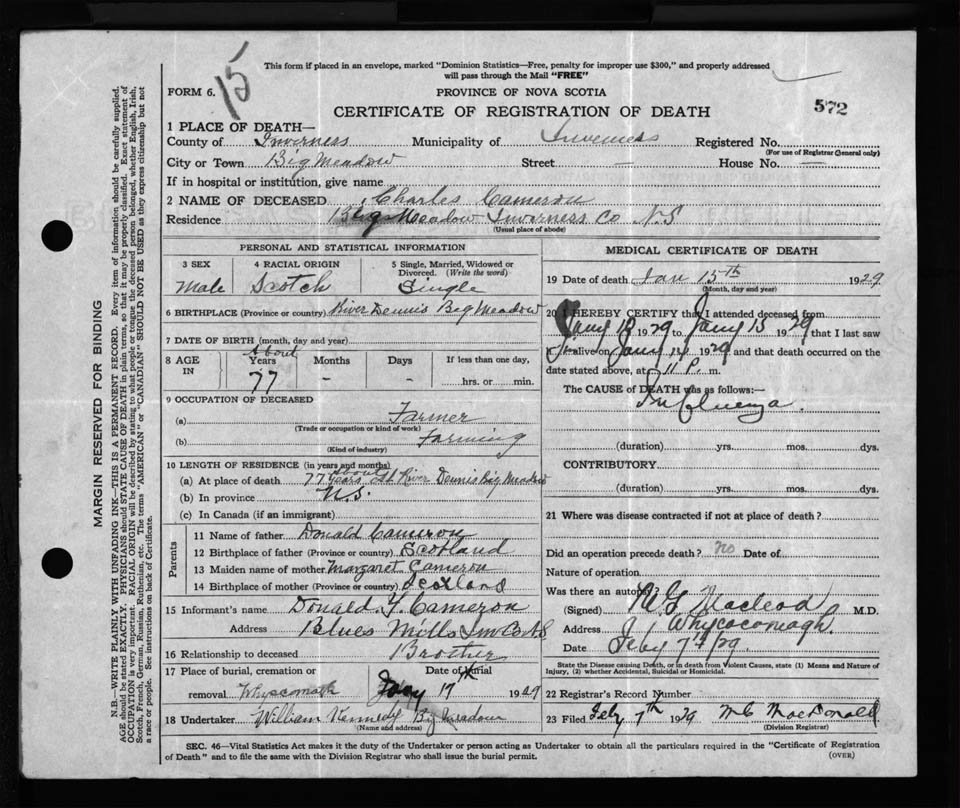 15
This form if placed in an envelope, marked "Dominion Statistics—Free, penalty for improper use $300," and properly addressed
will pass through the Mail "FREE"
FORM 6.
PROVINCE OF NOVA SCOTIA
572
CERTIFICATE OF REGISTRATION OF DEATH
1 PLACE OF DEATH—
County of Inverness Municipality of Inverness Registered No.
(For use of Registrar General only)
City or Town Big Meadow Street — House No. —
If in hospital or institution, give name
2 NAME OF DECEASED Charles Cameron
Residence Big Meadow Inverness Co N.S
(Usual place of abode)
PERSONAL AND STATISTICAL INFORMATION
3 SEX 4 RACIAL ORIGIN 5 Single, Married, Widowed or Divorced. (Write the word)
Male Scotch Single
6 BIRTHPLACE (Province or country) River Dennis Big Meadow
7 DATE OF BIRTH (month, day and year)
8 AGE IN About Years Months Days If less than one day,
77 - - hrs. or min.
9 OCCUPATION OF DECEASED
(a) Farmer
(Trade or occupation or kind of work)
(b) Farming
(Kind of industry)
10 LENGTH OF RESIDENCE (in years and months)
(a) At place of death 77 years About at River Dennis Big Meadow
(b) In province N.S.
(c) In Canada (if an immigrant)
Parents
11 Name of father Donald Cameron
12 Birthplace of father (Province or country) Scotland
13 Maiden name of mother Margaret Cameron
14 Birthplace of mother (Province or country) Scotland
15 Informant's name Donald Cameron
Address Blues Mills Inv Co NS
16 Relationship to deceased Brother
17 Place of burial, cremation or Date of Burial
removal Whycomagh Jany 17 1929
18 Undertaker William Kennedy Big Meadow
(Name and address)
MEDICAL CERTIFICATE OF DEATH
19 Date of death Jan 15th 1929
(Month, day and year)
20 I HEREBY CERTIFY that I attended deceased from
Jany 13 1929 to Jany 15 1929 that I last saw
alive on Jany 1929 and that death occurred on the
date stated above, at 11 P. m.
The CAUSE OF DEATH was as follows:—
Influenza.
(duration) yrs. mos. dys.
CONTRIBUTORY
(duration) yrs. mos. dys.
21 Where was disease contracted if not at place of death?
Did an operation precede death? no Date of
Nature of operation
Was there an autopsy?
(Signed) Macleod M.D.
Address Whycocomagh.
Date Feby 7th/29
State the Disease causing Death, or in death from Violent Causes, state (1) Means and Nature of
Injury, (2) whether Accidental, Suicidal or Homicidal.
22 Registrar's Record Number
23 Filed Feby 7th 1929 MacDonald
(Division Registrar)
SEC. 46—Vital Statistics Act makes it the duty of the Undertaker or person acting as Undertaker to obtain all the particulars required in the "Certificate of Registration
of Death" and to file the same with the Division Registrar who shall issue the burial permit. (OVER)
MARGIN RESERVED FOR BINDING
N.B.—WRITE PLAINLY WITH UNFADING INK—THIS IS A PERMANENT RECORD. Every item of information should be carefully supplied.
AGE should be stated EXACTLY. PHYSICIANS should STATE CAUSE OF DEATH in plain terms, so that it may be properly classified. Exact statement of
OCCUPATION is very important. RACIAL ORIGIN will be described by stating to what people or tongue the deceased person belonged, whether English, Irish,
Scotch, French, German, Russian, Ruthenian, etc. The terms "AMERICAN" or "CANADIAN" SHOULD NOT BE USED as they express citizenship but not
a race or people. See instructions on back of Certificate.